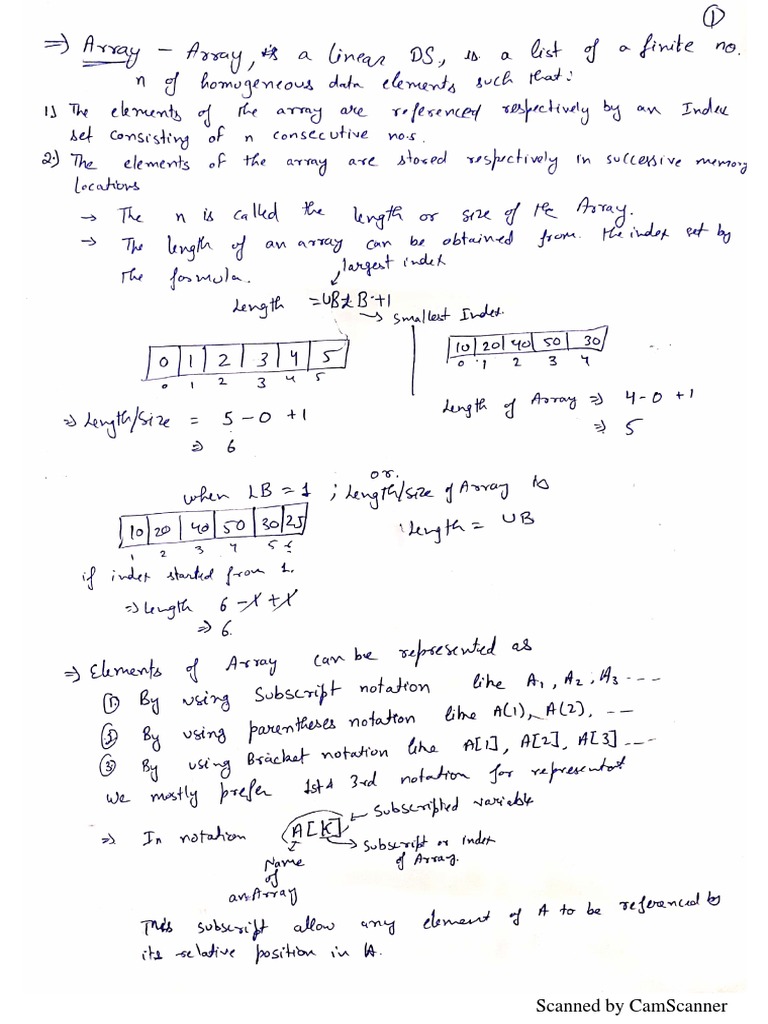 ①
⇒ Array - Array, is a linear DS, is a list of a finite no.
n of homogeneous data elements such that:
1) The elements of the array are referenced respectively by an Index
set consisting of n consecutive no.s.
2.) The elements of the array are stored respectively in successive memory
locations
→ The n is called the length or size of the Array.
→ The length of an array can be obtained from the index set by
the formula.
largest index
Length = UB - LB + 1
→ Smallest Index.
0 1 2 3 4 5
0 1 2 3 4 5
⇒ Length/Size = 5 - 0 + 1
⇒ 6
10 20 40 50 30
0 1 2 3 4
Length of Array ⇒ 4 - 0 + 1
⇒ 5
or.
when LB = 1 ; Length/size of Array is
Length = UB
10 20 40 50 30 25
1 2 3 4 5 6
if index started from 1.
⇒ Length 6 - 1 + 1
⇒ 6.
⇒ Elements of Array can be represented as
① By using Subscript notation like A1, A2, A3 ----
② By using parentheses notation like A(1), A(2), --
③ By using Bracket notation like A[1], A[2], A[3] ----
We mostly prefer 1st & 3rd notation for representat
⇒ In notation A[K] ← Subscripted variable
→ Subscript or index
of Array.
Name
of
an Array
This subscript allow any element of A to be referenced by
its relative position in A.
Scanned by CamScanner